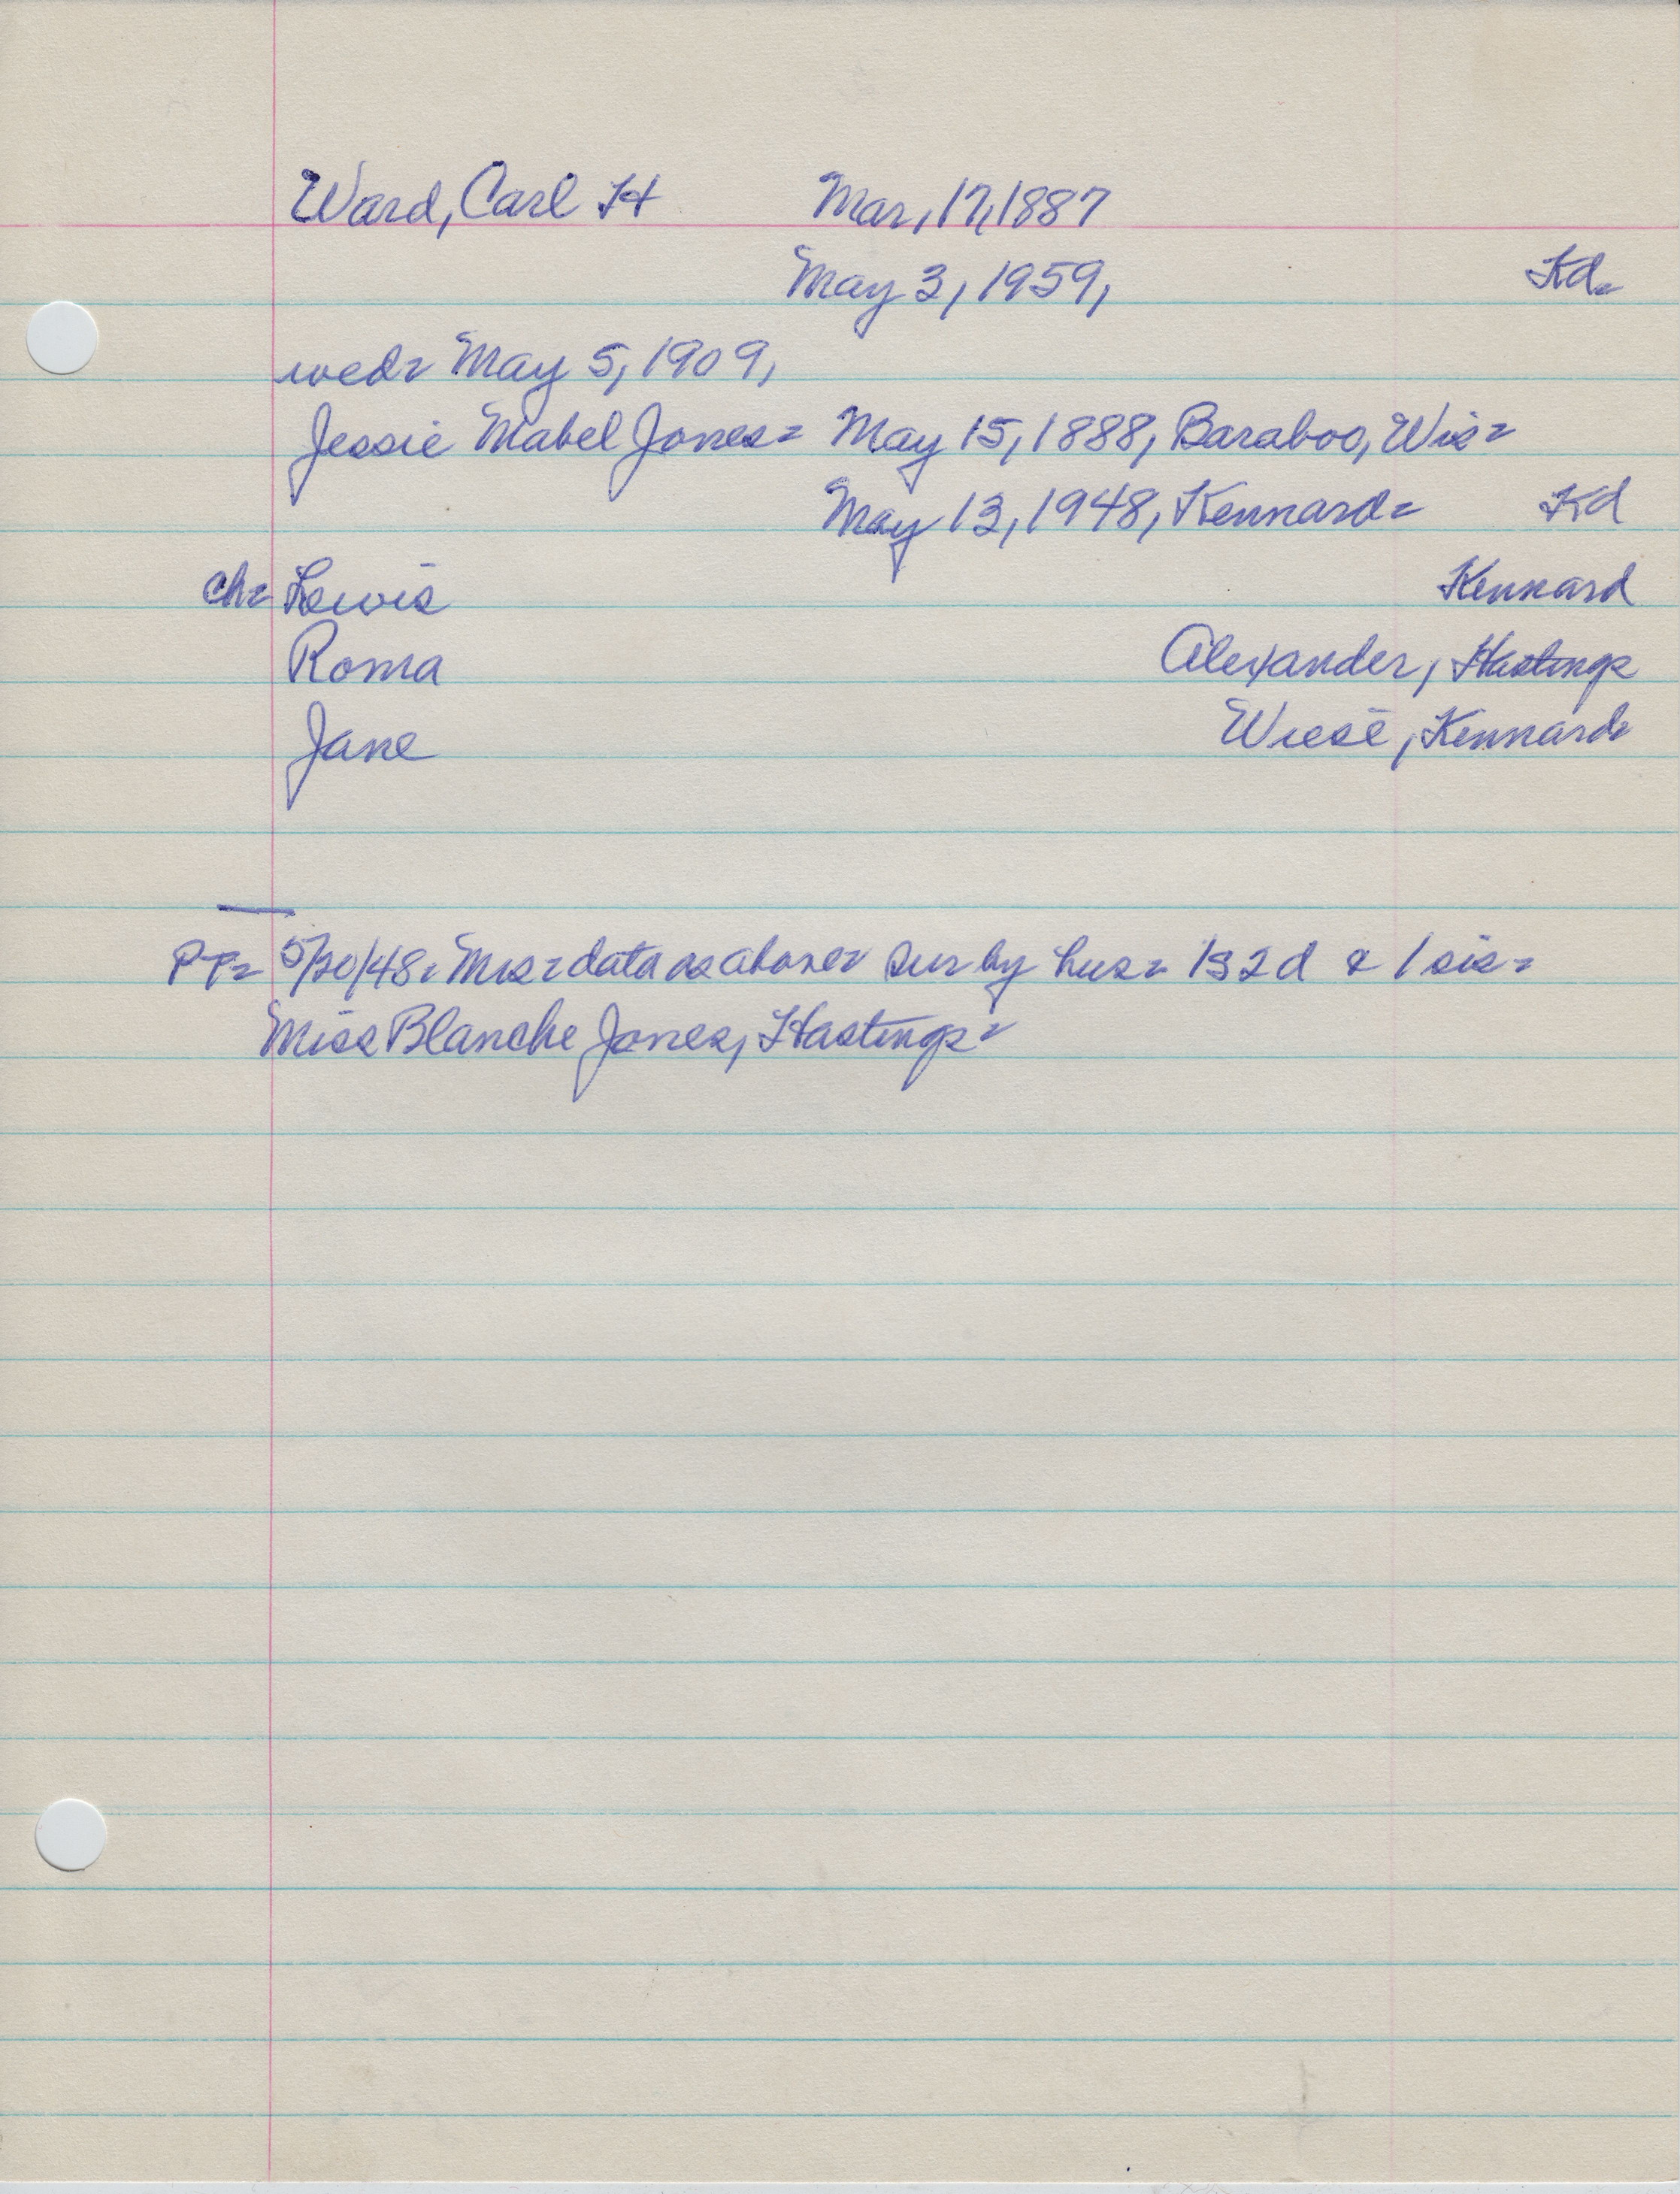 Ward, Carl H Mar, 17, 1887
May 3, 1959, Kd=
wed= May 5, 1909,
Jessie Mabel Jones= May 15, 1888, Baraboo, Wis=
May 13, 1948, Kennard= Kd
ch= Lewis Kennard
Roma Alexander, Hastings
Jane Wiese, Kennard=
PP= 5/20/48= Mrs= data as above= sur by hus= 1s 2d & 1 sis=
Miss Blanche Jones, Hastings=